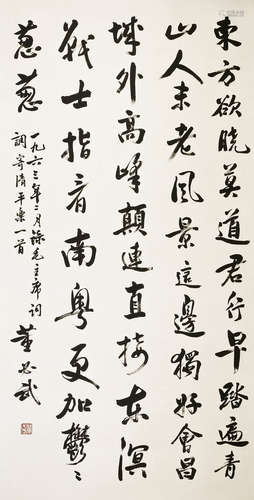 東方欲曉莫道君行早踏遍青
山人未老風景這邊獨好會昌
城外高峰顛連直接東溟
戰士指看南粵更加鬱〻
蔥蔥
一九六三年二月錄毛主席詞
調寄清平樂一首
董必武